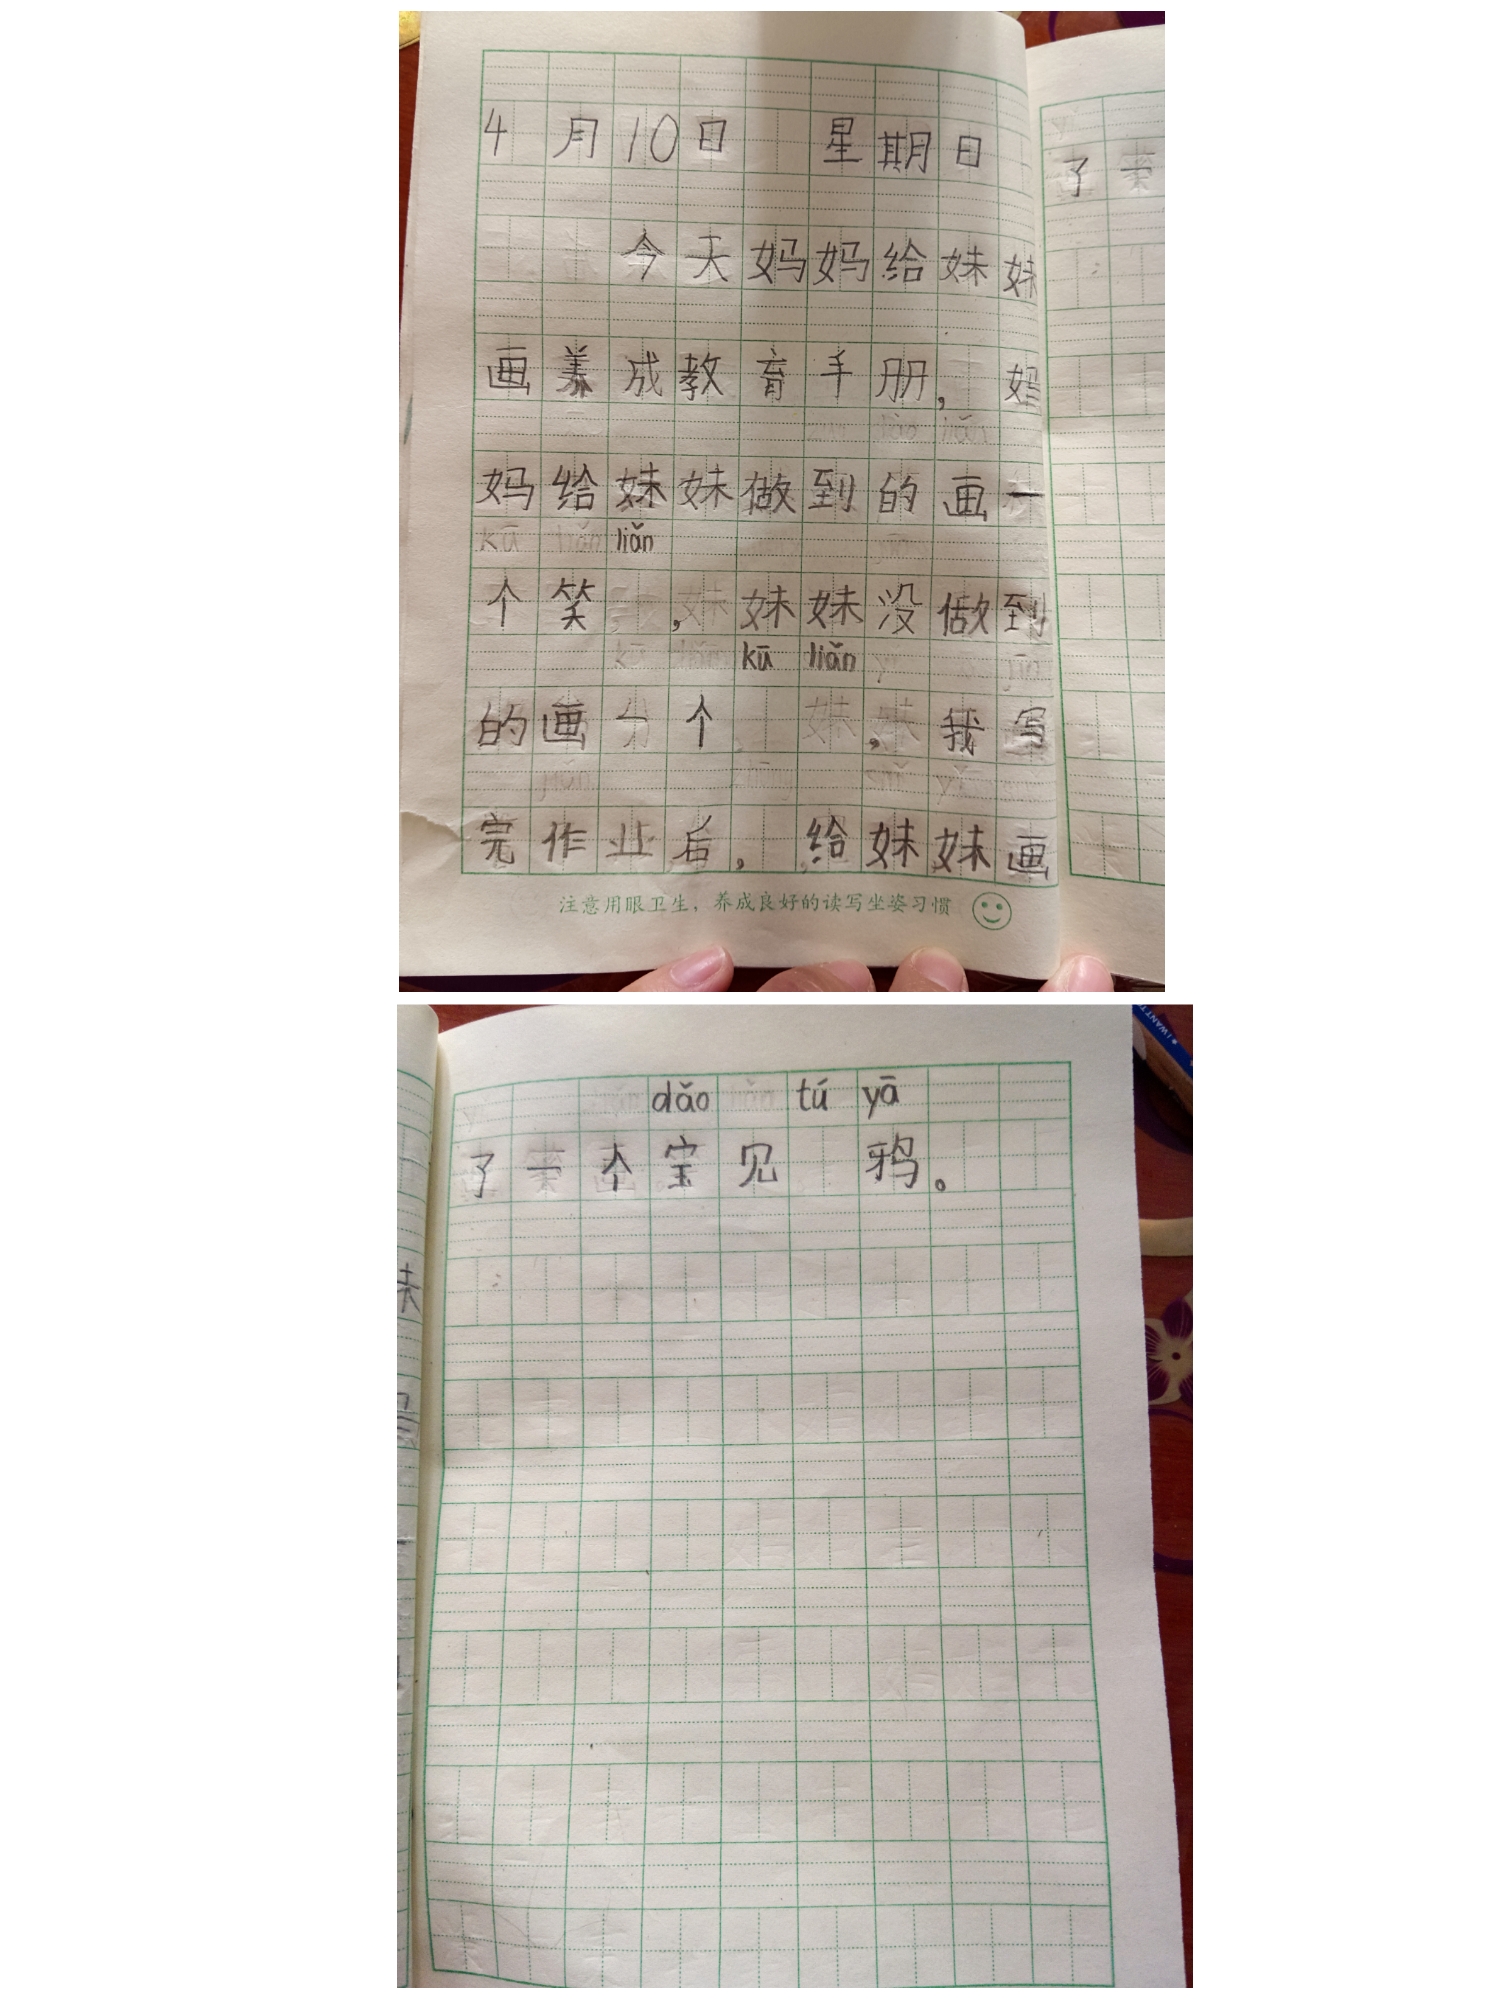 4月10日 星期日
今天妈妈给妹妹
画养成教育手册，妈
妈给妹妹做到的画一
liǎn
个笑 ，妹妹没做到
kū liǎn
的画一个 ，我写
完作业后，给妹妹画
注意用眼卫生，养成良好的读写坐姿习惯
了一
dǎo tú yā
了一个宝见 鸦。
I WANT